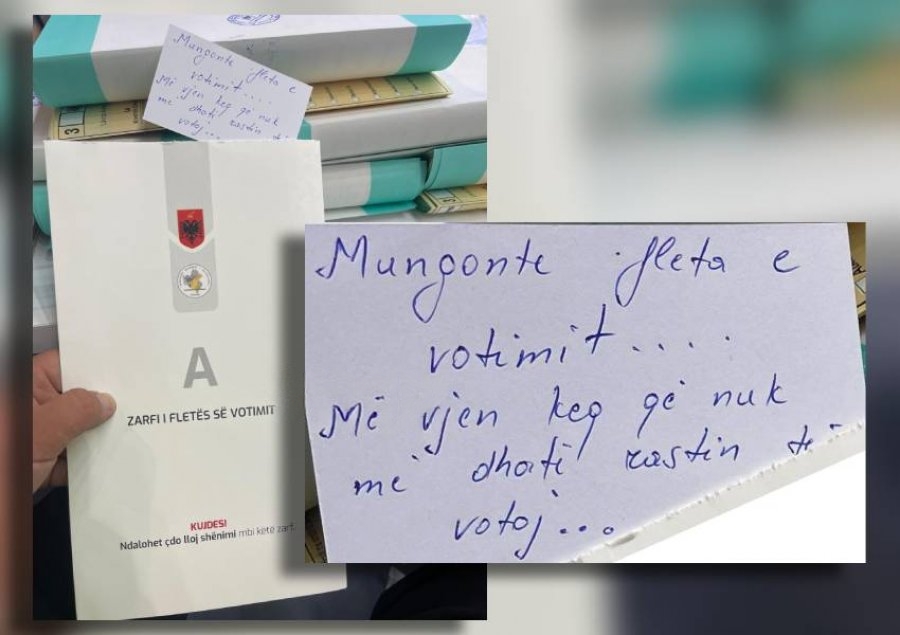 Mungonte fleta e
votimit....
Më vjen keq që nuk
me dhatë rastin
votoj...
3
A
ZARFI I FLETËS SË VOTIMIT
KUJDES!
Ndalohet çdo lloj shënimi mbi këtë zarf.
Mungonte fleta e
votimit....
Më vjen keq që nuk
me dhatë rastin të
votoj...